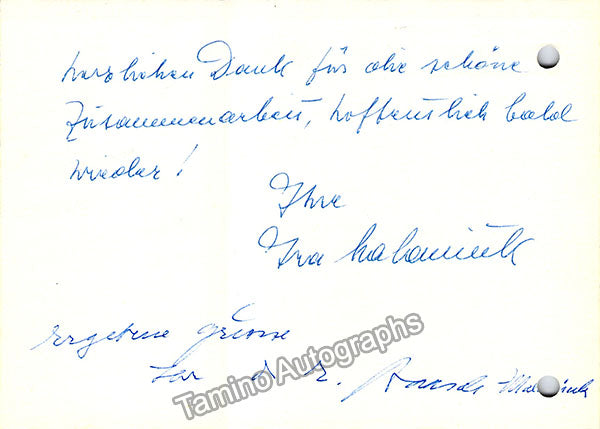 herzlichen Dank für die schöne
Zusammenarbeit, hoffentlich bald
wieder!
Ihre
Ira Malaniuk
ergebene Grüsse
Tamino Autographs